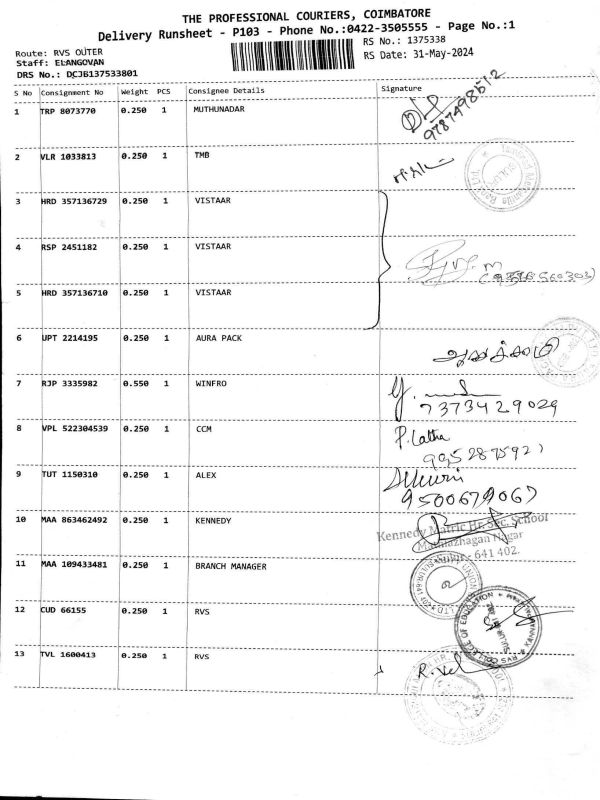 THE PROFESSIONAL COURIERS, COIMBATORE
Delivery Runsheet - P103 - Phone No.:0422-3505555 - Page No.:1
Route: RVS OUTER
RS No.: 1375338
Staff: ELANGOVAN
RS Date: 31-May-2024
DRS No.: DCJB137533801
S No Consignment No Weight PCS Consignee Details Signature
1 TRP 8073770 0.250 1 MUTHUNADAR
2 VLR 1033813 0.250 1 TMB
3 HRD 357136729 0.250 1 VISTAAR
4 RSP 2451182 0.250 1 VISTAAR
5 HRD 357136710 0.250 1 VISTAAR
6 UPT 2214195 0.250 1 AURA PACK
7 RJP 3335982 0.550 1 WINFRO
7373429029
8 VPL 522304539 0.250 1 CCM P. Latha
9 TUT 1150310 0.250 1 ALEX
9500679067
10 MAA 863462492 0.250 1 KENNEDY
Kennedy Matric Hr. Sec. School
Nagar
- 641 402.
11 MAA 109433481 0.250 1 BRANCH MANAGER
12 CUD 66155 0.250 1 RVS
RVS COLLEGE OF EDUCATION
SULUR
13 TVL 1600413 0.250 1 RVS R. Vel